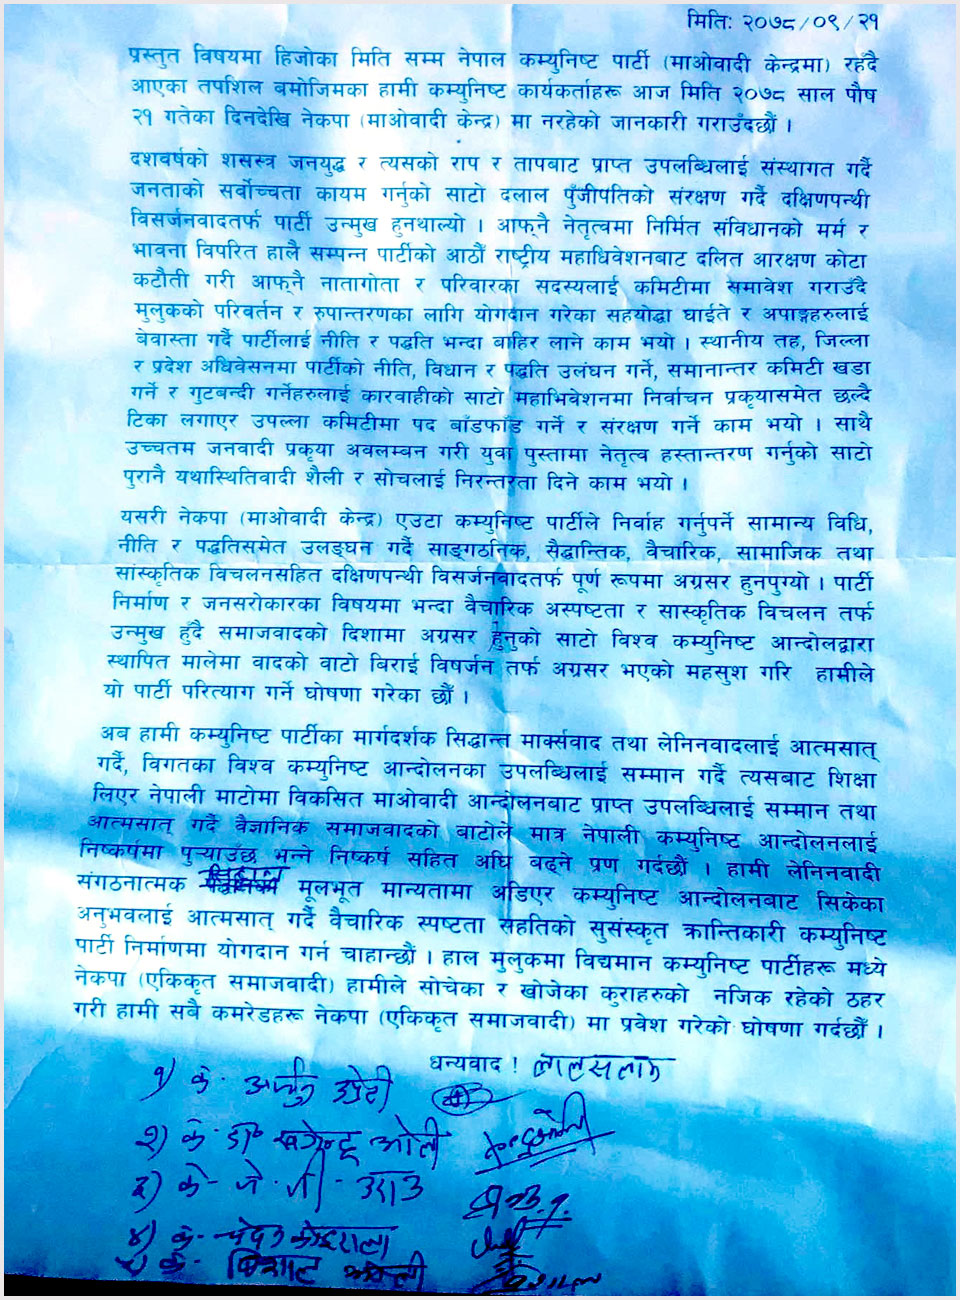 मिति: २०७८/०९/२१
प्रस्तुत विषयमा हिजोका मिति सम्म नेपाल कम्युनिष्ट पार्टी (माओवादी केन्द्रमा) रहँदै
आएका तपशिल बमोजिमका हामी कम्युनिष्ट कार्यकर्ताहरू आज मिति २०७८ साल पौष
२१ गतेका दिनदेखि नेकपा (माओवादी केन्द्र) मा नरहेको जानकारी गराउँदछौं ।
दशवर्षको शसस्त्र जनयुद्ध र त्यसको राप र तापबाट प्राप्त उपलब्धिलाई संस्थागत गर्दै
जनताको सर्वोच्चता कायम गर्नुको साटो दलाल पुँजीपतिको संरक्षण गर्दै दक्षिणपन्थी
विसर्जनवादतर्फ पार्टी उन्मुख हुनथाल्यो । आफ्नै नेतृत्वमा निर्मित संविधानको मर्म र
भावना विपरित हालै सम्पन्न पार्टीको आठौं राष्ट्रीय महाधिवेशनबाट दलित आरक्षण कोटा
कटौती गरी आफ्नै नातागोता र परिवारका सदस्यलाई कमिटीमा समावेश गराउँदै
मुलुकको परिवर्तन र रुपान्तरणका लागि योगदान गरेका सहयोद्धा घाईते र अपाङ्गहरुलाई
बेवास्ता गर्दै पार्टीलाई नीति र पद्धति भन्दा बाहिर लाने काम भयो । स्थानीय तह, जिल्ला
र प्रदेश अधिवेसनमा पार्टीको नीति, विधान र पद्धति उलंघन गर्ने, समानान्तर कमिटी खडा
गर्ने र गुटबन्दी गर्नेहरुलाई कारवाहीको साटो महाभिवेशनमा निर्वाचन प्रकृयासमेत छल्दै
टिका लगाएर उपल्ला कमिटीमा पद बाँडफाँड गर्ने र संरक्षण गर्ने काम भयो । साथै
उच्चतम जनवादी प्रकृया अवलम्बन गरी युवा पुस्तामा नेतृत्व हस्तान्तरण गर्नुको साटो
पुरानै यथास्थितिवादी शैली र सोचलाई निरन्तरता दिने काम भयो ।
यसरी नेकपा (माओवादी केन्द्र) एउटा कम्युनिष्ट पार्टीले निर्वाह गर्नुपर्ने सामान्य विधि,
नीति र पद्धतिसमेत उलङ्घन गर्दै साङ्गठनिक, सैद्धान्तिक, वैचारिक, सामाजिक तथा
सांस्कृतिक विचलनसहित दक्षिणपन्थी विसर्जनवादतर्फ पूर्ण रूपमा अग्रसर हुनपुग्यो । पार्टी
निर्माण र जनसरोकारका विषयमा भन्दा वैचारिक अस्पष्टता र सास्कृतिक विचलन तर्फ
उन्मुख हुँदै समाजवादको दिशामा अग्रसर हुनुको साटो विश्व कम्युनिष्ट आन्दोलद्वारा
स्थापित मालेमा वादको वाटो बिराई विषर्जन तर्फ अग्रसर भएको महसुश गरि हामीले
यो पार्टी परित्याग गर्ने घोषणा गरेका छौं ।
अब हामी कम्युनिष्ट पार्टीका मार्गदर्शक सिद्धान्त मार्क्सवाद तथा लेनिनवादलाई आत्मसात्
गर्दै, विगतका विश्व कम्युनिष्ट आन्दोलनका उपलब्धिलाई सम्मान गर्दै त्यसबाट शिक्षा
लिएर नेपाली माटोमा विकसित माओवादी आन्दोलनबाट प्राप्त उपलब्धिलाई सम्मान तथा
आत्मसात् गर्दै वैज्ञानिक समाजवादको बाटोले मात्र नेपाली कम्युनिष्ट आन्दोलनलाई
निष्कर्षमा पुऱ्याउँछ भन्ने निष्कर्ष सहित अघि बढ्ने प्रण गर्दछौं । हामी लेनिनवादी
संगठनात्मक मूलभूत मान्यतामा अडिएर कम्युनिष्ट आन्दोलनबाट सिकेका
अनुभवलाई आत्मसात् गर्दै वैचारिक स्पष्टता सहतिको सुसंस्कृत क्रान्तिकारी कम्युनिष्ट
पार्टी निर्माणमा योगदान गर्न चाहान्छौं । हाल मुलुकमा विद्यमान कम्युनिष्ट पार्टीहरू मध्ये
नेकपा (एकिकृत समाजवादी) हामीले सोचेका र खोजेका कुराहरुको नजिक रहेको ठहर
गरी हामी सबै कमरेडहरू नेकपा (एकिकृत समाजवादी) मा प्रवेश गरेको घोषणा गर्दछौं ।
धन्यवाद ! लालसलाम
१) के. अर्जुन उप्रेती
२) के. डी. खगेन्द्र ओली
३) के. जे. वी. उराउ
४) के. कोइराला
५) के. विशाल ओली